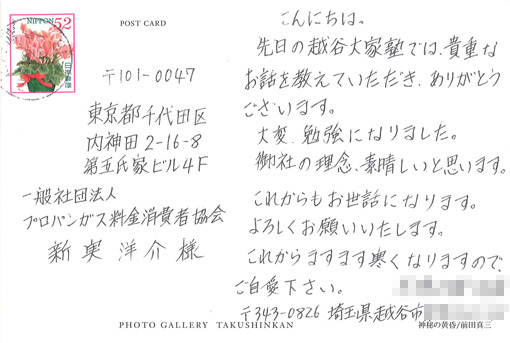 NIPPON 52
日本郵便
POST CARD
〒101-0047
東京都千代田区
内神田2-16-8
第五氏家ビル4F
一般社団法人
プロパンガス料金消費者協会
新実洋介様
こんにちは。
先日の越谷大家塾では、貴重な
お話を教えていただき、ありがとう
ございます。
大変、勉強になりました。
御社の理念、素晴しいと思います。
これからもお世話になります。
よろしくお願いいたします。
これからますます寒くなりますので、
ご自愛下さい。
〒343-0826 埼玉県越谷市
PHOTO GALLERY TAKUSHINKAN
神秘の黄昏/前田真三